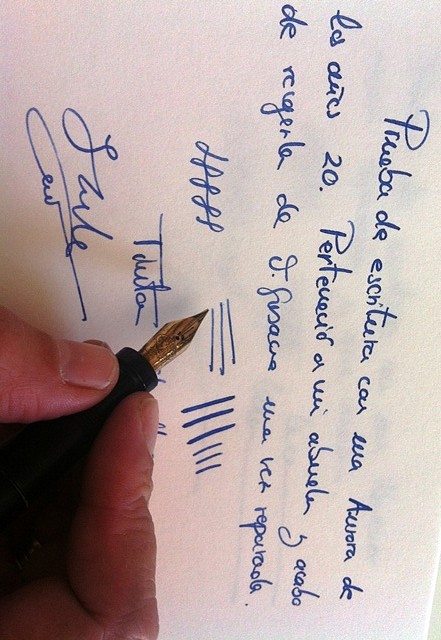 Prueba de escritura con una Aurora de
los años 20. Perteneció a mi abuela y acabo
de recogerla de una vez reparada.
Tinta